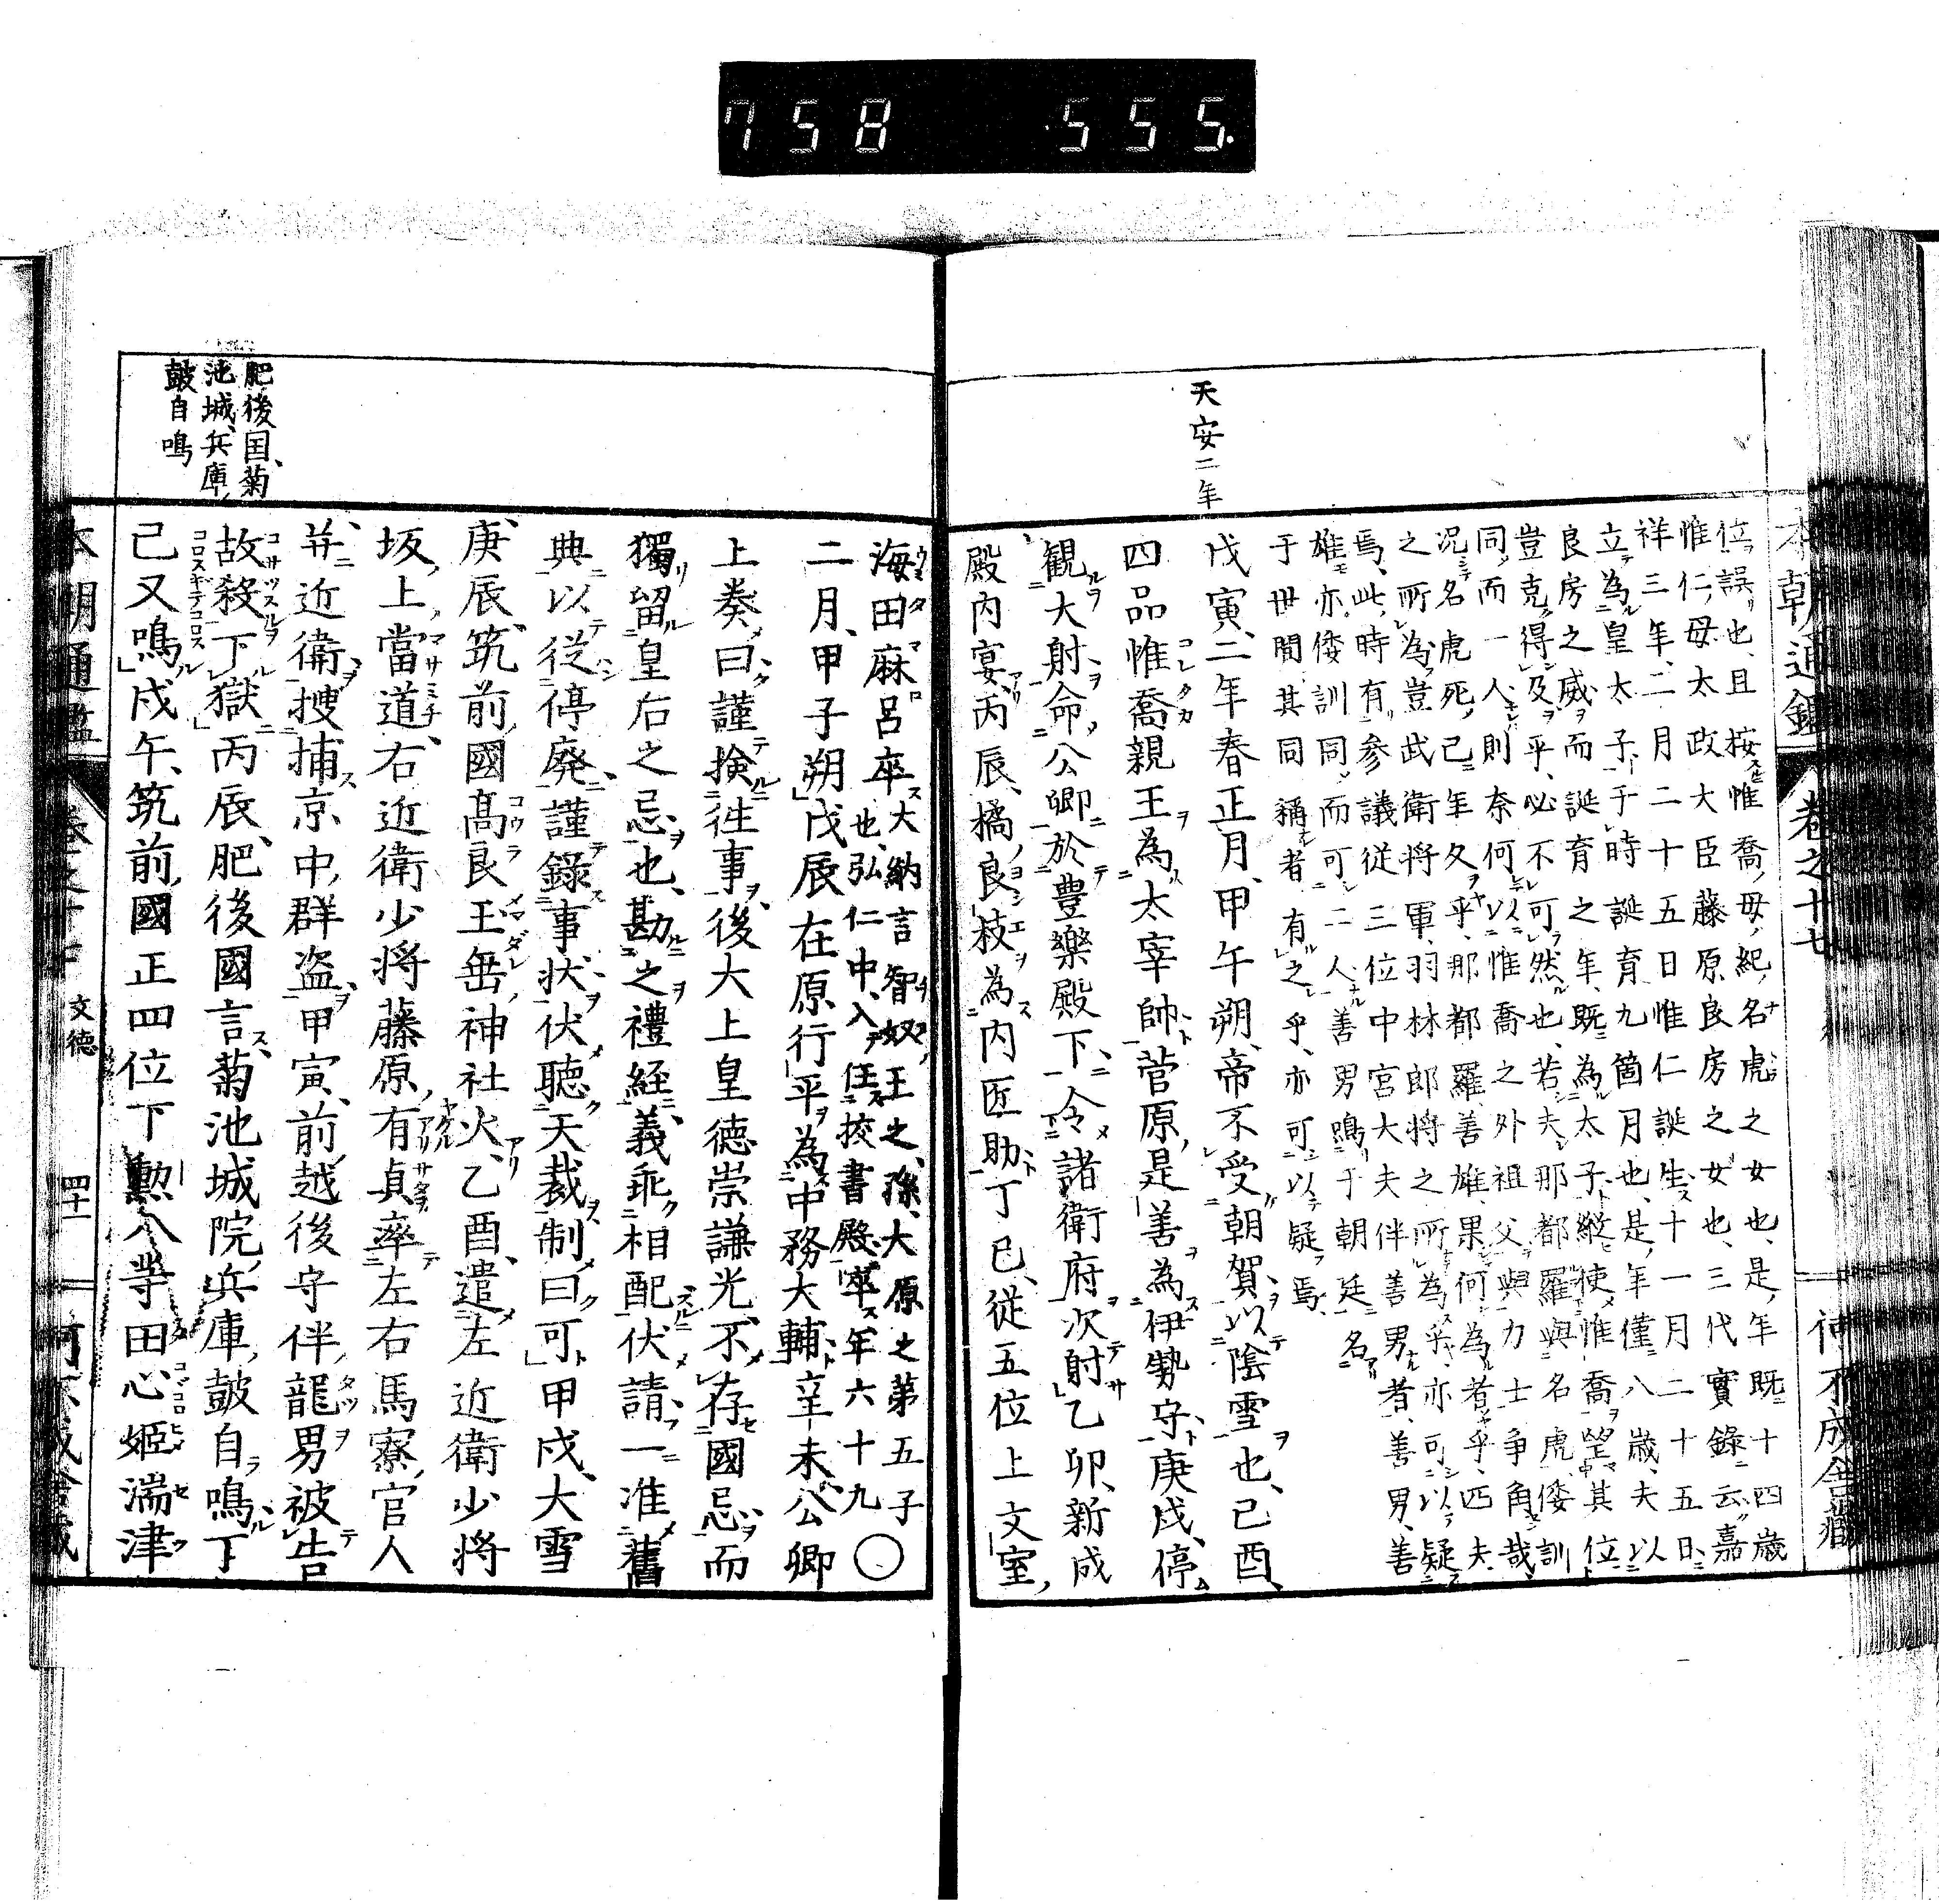 758 555.
本朝通鑑 卷之十七
天安二年
位誤也、且按惟喬母、紀名虎之女也、是年既十四歲
惟仁母、太政大臣藤原良房之女也、三代實錄云、嘉
祥三年、二月二十五日惟仁誕生、十一月二十五日
立為皇太子、于時誕育九箇月也、是年僅八歲、夫以
良房之威而誕育之年、既為太子、縱使惟喬望其位
豈克得及乎、必不可然也、若夫那都羅與名虎、倭訓
同、而一人則奈何以惟喬之外祖父與力士争角哉
況名虎死、已年久乎、那都羅善雄、果何為者乎、匹夫
之所為、豈武衛將軍、羽林郎將之所為乎、亦可以疑
焉、此時有參議從三位中宮大夫伴善男者、善男、善
雄亦倭訓同、而可二人、善男鳴于朝廷、名
于世間其同稱者、有之乎、亦可以疑焉、
戊寅、二年春正月、甲午朔、帝不受朝賀、以陰雪也、己酉、
四品惟喬親王為太宰帥、菅原是善為伊勢守、庚戌、停
觀大射、命公卿於豊樂殿下、令諸衛府次射、乙卯、新成
殿内宴、丙辰、橘良枝為内匠助、丁巳、從五位上文室
海田麻呂卒、大納言智奴王之孫、大原之第五子
也、弘仁中、入任挍書殿、卒年六十九〇
二月、甲子朔、戊辰在原行平為中務大輔、辛未、公卿
上奏曰、謹撿往事、後大上皇德崇謙光、不存國忌、而
獨留皇右之忌也、勘之禮經義乖相配、伏請一准舊
典以從停廢、謹錄事狀、伏聽天裁、制曰可、甲戌、大雪
庚辰、筑前國髙良玉垂神社火、乙酉、遣左近衛少將
坂上當道、右近衛少將藤原有貞率左右馬寮官人
并近衛搜捕京中群盗、甲寅、前越後守伴龍男被告
故殺下獄、丙辰、肥後國言菊池城院兵庫皷自鳴、丁
己又鳴、戌午、筑前國正四位下勲八等田心姬湍津
肥後国菊
池城兵庫
皷自鳴
本朝通鑑
文德
四十一